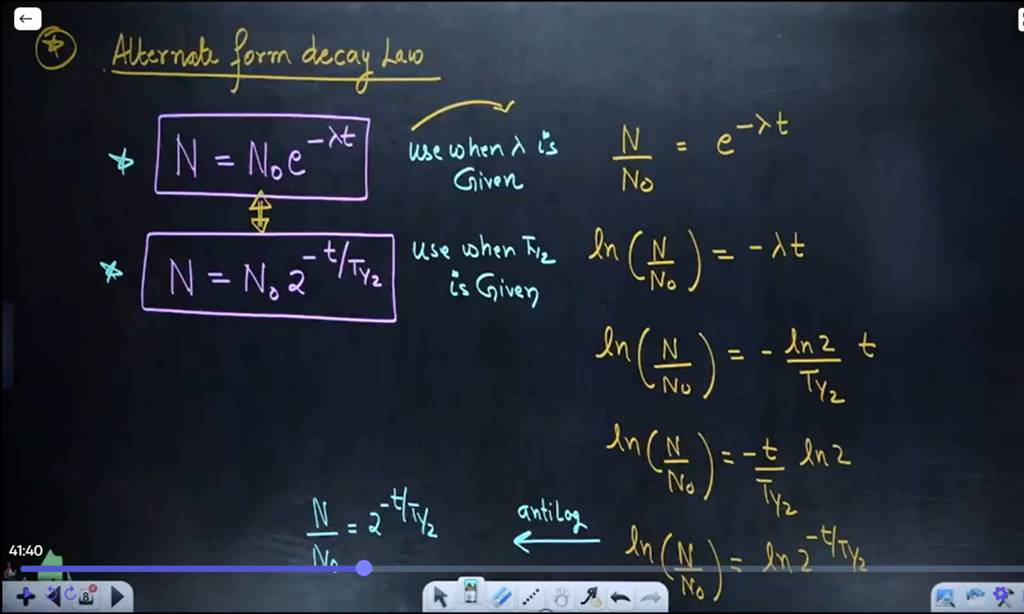 Alternate form decay Law
N = N₀e^(-λt)
use when λ is
Given
N = N₀ 2^(-t/T½)
use when T½
is Given
N/N₀ = e^(-λt)
ln(N/N₀) = -λt
ln(N/N₀) = - ln2/T½ t
ln(N/N₀) = -t/T½ ln2
ln(N/N₀) = ln 2^(-t/T½)
antilog
N/N₀ = 2^(-t/T½)
41:40